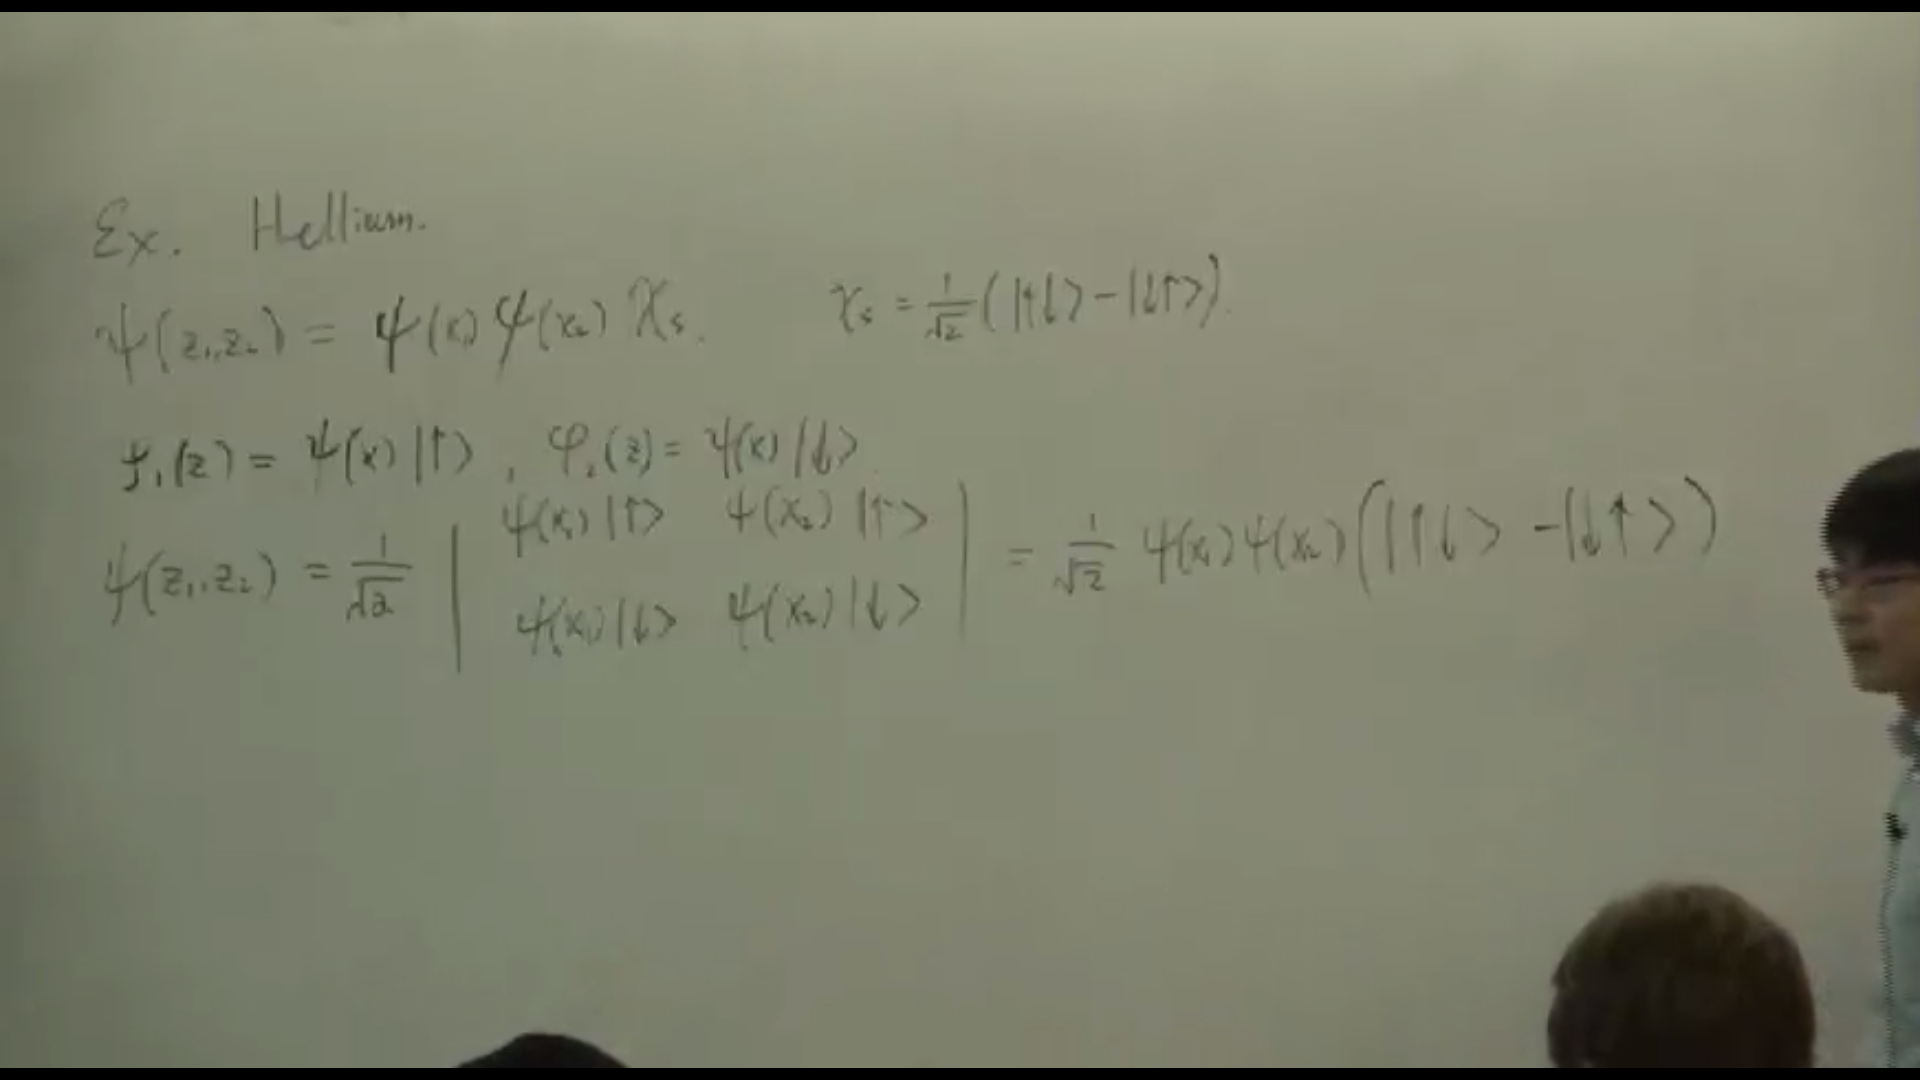 Ex. Hellium.
ψ(z₁,z₂) = ψ(x₁)ψ(x₂) χₛ. χₛ = 1/√2 (|↑↓> - |↓↑>).
φ₁(z) = ψ(x)|↑>, φ₂(z) = ψ(x)|↓>.
ψ(z₁,z₂) = 1/√2 | ψ(x₁)|↑> ψ(x₂)|↑> | = 1/√2 ψ(x₁)ψ(x₂)(|↑↓> - |↓↑>)
ψ(x₁)|↓> ψ(x₂)|↓>